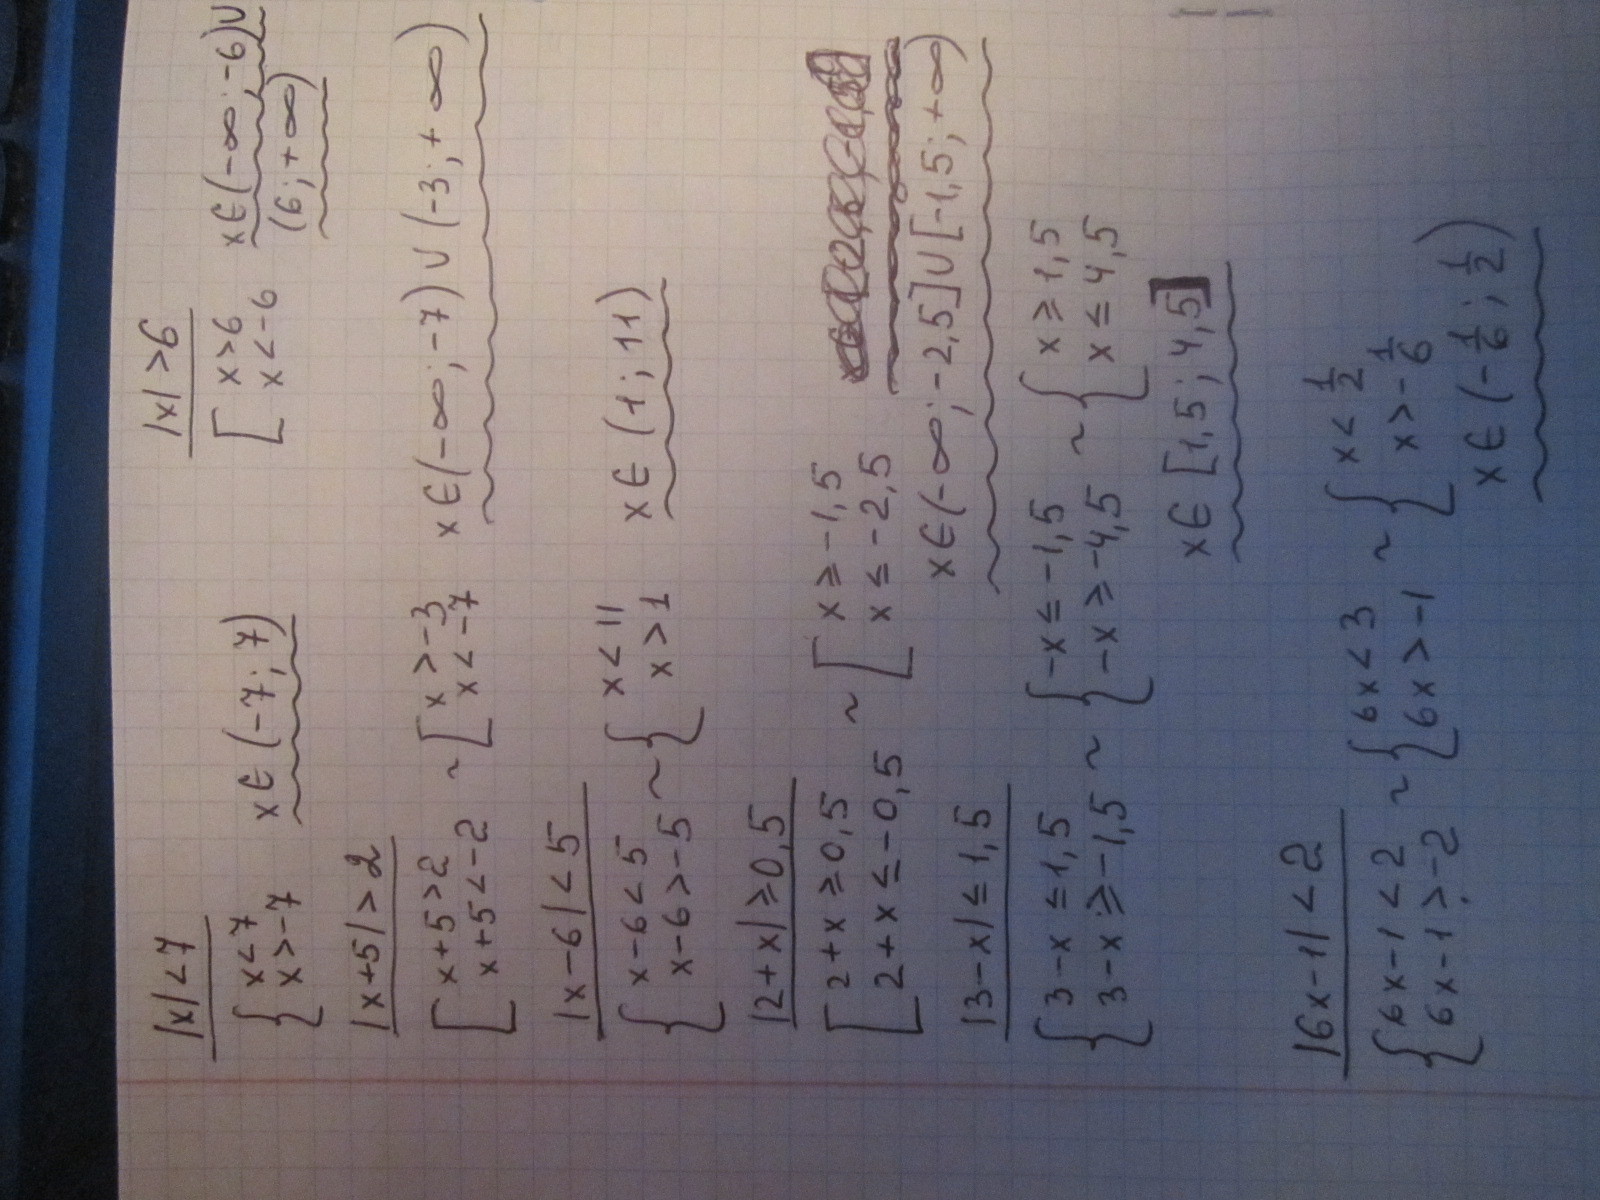 |x|<7
|x|>6
{ x<7
x>-7
x∈(-7; 7)
[ x>6
x<-6
x∈(-∞; -6)∪
(6; +∞)
|x+5|>2
[ x+5>2
x+5<-2
~
[ x>-3
x<-7
x∈(-∞; -7)∪(-3; +∞)
|x-6|<5
{ x-6<5
x-6>-5
~
{ x<11
x>1
x∈(1; 11)
|2+x|≥0,5
[ 2+x≥0,5
2+x≤-0,5
~
[ x≥-1,5
x≤-2,5
x∈(-∞; -2,5]∪[-1,5; +∞)
|3-x|≤1,5
{ 3-x≤1,5
3-x≥-1,5
~
{ -x≤-1,5
-x≥-4,5
~
{ x≥1,5
x≤4,5
x∈[1,5; 4,5]
|6x-1|<2
{ 6x-1<2
6x-1>-2
~
{ 6x<3
6x>-1
~
{ x<1/2
x>-1/6
x∈(-1/6; 1/2)